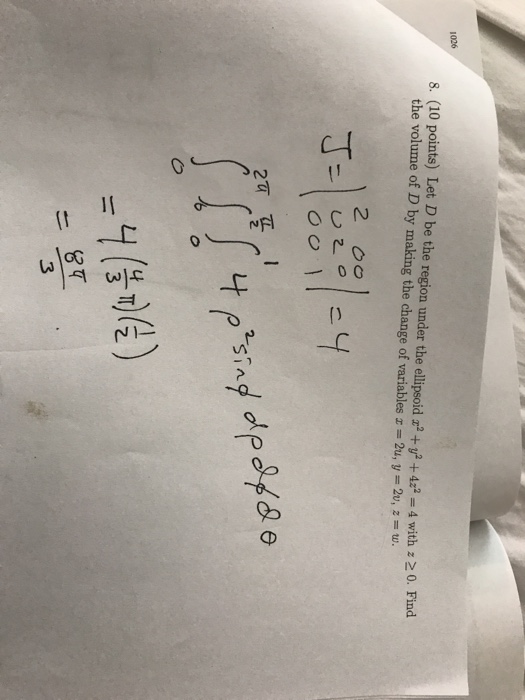 1026
8. (10 points) Let D be the region under the ellipsoid x² + y² + 4z² = 4 with z ≥ 0. Find
the volume of D by making the change of variables x = 2u, y = 2v, z = w.
J = | 2 0 0
0 2 0
0 0 1 | = 4
∫₀^2π ∫₀^π/2 ∫₀^1 4 ρ² sin φ dρ dφ dθ
= 4 (4/3 π) (1/2)
= 8π/3 .